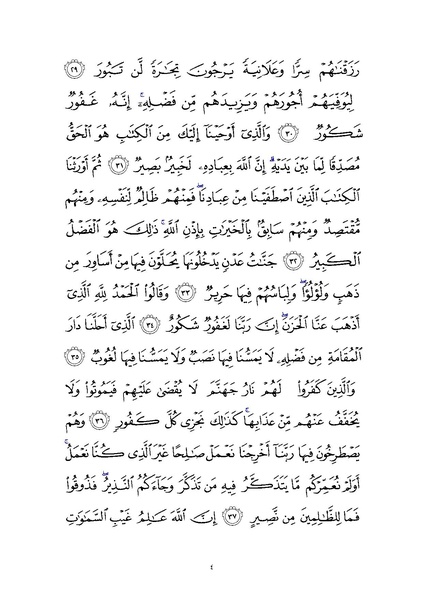 رَزَقْنَٰهُمْ سِرًّا وَعَلَانِيَةً يَرْجُونَ تِجَٰرَةً لَّن تَبُورَ ٢٩
لِيُوَفِّيَهُمْ أُجُورَهُمْ وَيَزِيدَهُم مِّن فَضْلِهِۦٓ ۚ إِنَّهُۥ غَفُورٌ
شَكُورٌ ٣٠ وَٱلَّذِىٓ أَوْحَيْنَآ إِلَيْكَ مِنَ ٱلْكِتَٰبِ هُوَ ٱلْحَقُّ
مُصَدِّقًا لِّمَا بَيْنَ يَدَيْهِ ۗ إِنَّ ٱللَّهَ بِعِبَادِهِۦ لَخَبِيرٌۢ بَصِيرٌ ٣١ ثُمَّ أَوْرَثْنَا
ٱلْكِتَٰبَ ٱلَّذِينَ ٱصْطَفَيْنَا مِنْ عِبَادِنَا ۖ فَمِنْهُمْ ظَالِمٌ لِّنَفْسِهِۦ وَمِنْهُم
مُّقْتَصِدٌ وَمِنْهُمْ سَابِقٌۢ بِٱلْخَيْرَٰتِ بِإِذْنِ ٱللَّهِ ۚ ذَٰلِكَ هُوَ ٱلْفَضْلُ
ٱلْكَبِيرُ ٣٢ جَنَّٰتُ عَدْنٍ يَدْخُلُونَهَا يُحَلَّوْنَ فِيهَا مِنْ أَسَاوِرَ مِن
ذَهَبٍ وَلُؤْلُؤًا ۖ وَلِبَاسُهُمْ فِيهَا حَرِيرٌ ٣٣ وَقَالُوا۟ ٱلْحَمْدُ لِلَّهِ ٱلَّذِىٓ
أَذْهَبَ عَنَّا ٱلْحَزَنَ ۖ إِنَّ رَبَّنَا لَغَفُورٌ شَكُورٌ ٣٤ ٱلَّذِىٓ أَحَلَّنَا دَارَ
ٱلْمُقَامَةِ مِن فَضْلِهِۦ لَا يَمَسُّنَا فِيهَا نَصَبٌ وَلَا يَمَسُّنَا فِيهَا لُغُوبٌ ٣٥
وَٱلَّذِينَ كَفَرُوا۟ لَهُمْ نَارُ جَهَنَّمَ لَا يُقْضَىٰ عَلَيْهِمْ فَيَمُوتُوا۟ وَلَا
يُخَفَّفُ عَنْهُم مِّنْ عَذَابِهَا ۚ كَذَٰلِكَ نَجْزِى كُلَّ كَفُورٍ ٣٦ وَهُمْ
يَصْطَرِخُونَ فِيهَا رَبَّنَآ أَخْرِجْنَا نَعْمَلْ صَٰلِحًا غَيْرَ ٱلَّذِى كُنَّا نَعْمَلُ ۚ
أَوَلَمْ نُعَمِّرْكُم مَّا يَتَذَكَّرُ فِيهِ مَن تَذَكَّرَ وَجَآءَكُمُ ٱلنَّذِيرُ ۖ فَذُوقُوا۟
فَمَا لِلظَّٰلِمِينَ مِن نَّصِيرٍ ٣٧ إِنَّ ٱللَّهَ عَٰلِمُ غَيْبِ ٱلسَّمَٰوَٰتِ
٤